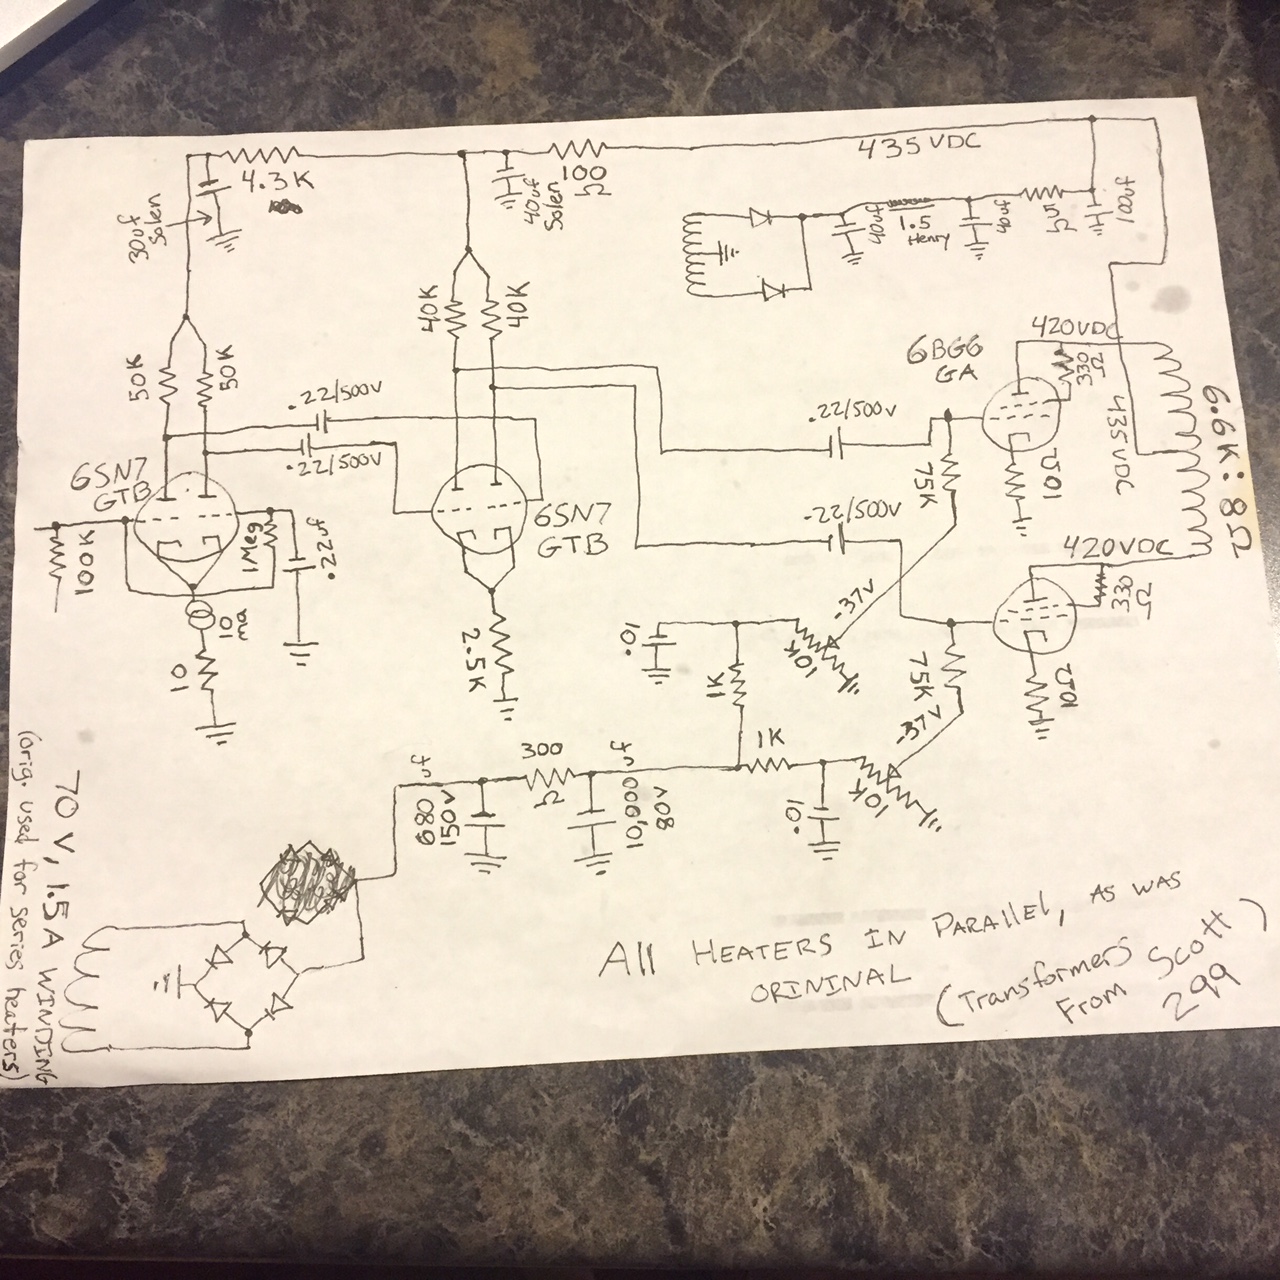 435 VDC
4.3K
100
Ω
40uf
Solen
30uf
Solen
40uf
1.5
Henry
40uf
5Ω
100uf
40K
40K
50K
50K
.22/500V
.22/500V
6SN7
GTB
6SN7
GTB
100K
1Meg
.22uf
10
ma
10
2.5K
6BG6
GA
420VDC
330
Ω
435 VDC
6.6K:8Ω
.22/500V
75K
10Ω
.22/500V
420VDC
330
Ω
-37V
10K
.01
1K
75K
10Ω
-37V
1K
10K
.01
300
Ω
uf
680
150V
uf
10,000
80V
70 V, 1.5 A WINDING
(orig. used for series heaters)
All HEATERS IN PARAllEl, AS WAS
ORININAL
(Transformers
From Scott
299)